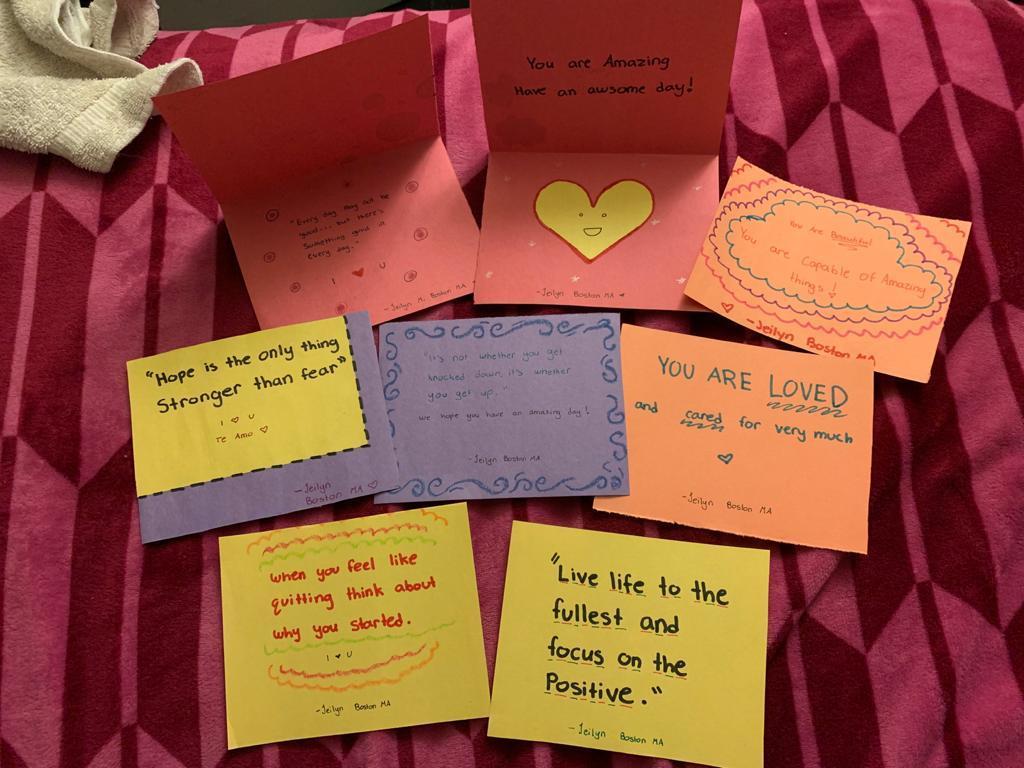 "Every day may not be
good... but there's
something good in
every day."
I ♥ U
-Jeilyn M. Boston MA
You are Amazing
Have an awsome day!
-Jeilyn Boston MA ♥
You Are Beautiful
You are capable of Amazing
things!
-Jeilyn Boston MA
"Hope is the only thing
Stronger than fear"
I ♡ U
Te Amo ♡
-Jeilyn
Boston MA ♡
"It's not whether you get
knocked down, it's whether
you get up."
We hope you have an amazing day!
-Jeilyn Boston MA
YOU ARE LOVED
and cared for very much
♡
-Jeilyn Boston MA
when you feel like
quitting think about
why you started.
I ♥ U
-Jeilyn Boston MA
"Live life to the
fullest and
focus on the
Positive."
-Jeilyn Boston MA